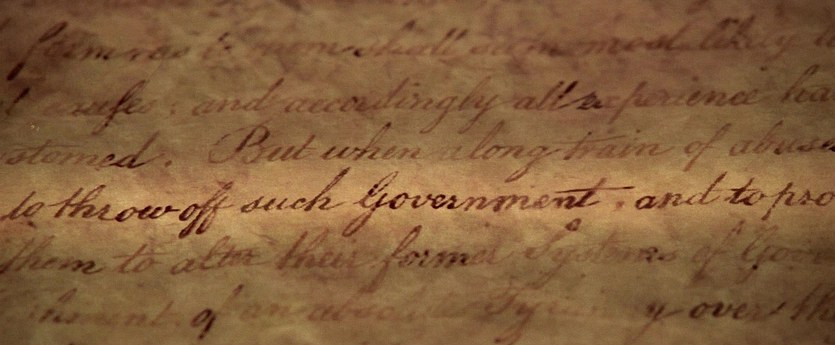 form as to them shall seem most likely
causes; and accordingly all experience ha
stomed. But when a long train of abuse
to throw off such Government, and to pro
them to alter their former Systems of Gover
shment of an absolute Tyranny over th